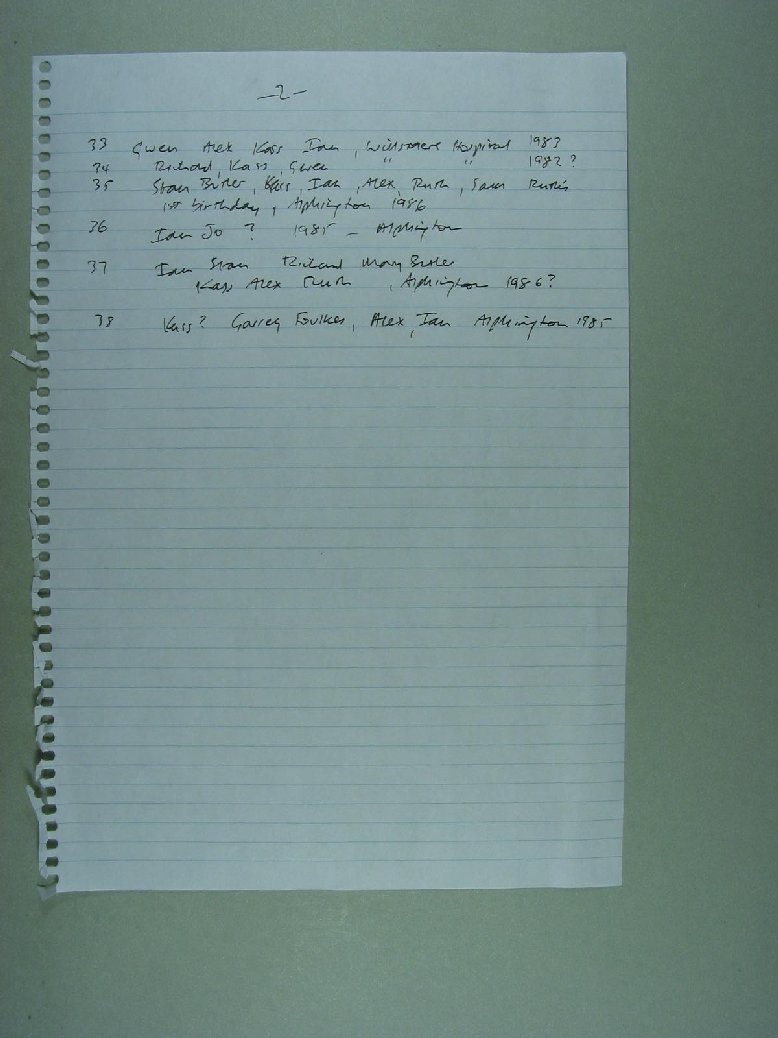 -2-
33 Gwen Alex Kass Ian, Willsmere Hospital 1983
34 Richard, Kass, Gwen " " 1982?
35 Stan Butler, Kass, Ian, Alex, Ruth, Sam Ruth's
1st birthday, Alphington 1986
36 Ian Jo ? 1985 - Alphington
37 Ian Stan Richard Mary Butler
Kass Alex Ruth, Alphington 1986?
38 Kass? Garrey Foulkes, Alex, Ian Alphington 1985